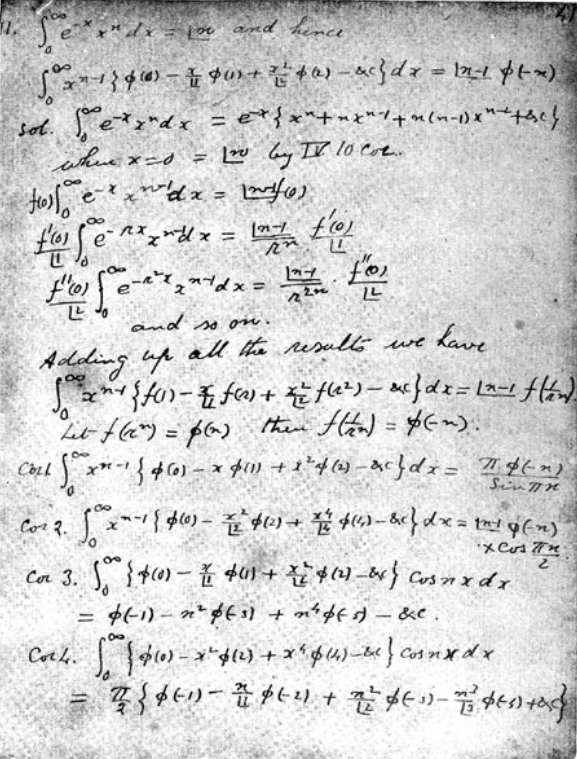 11. ∫₀^∞ e^{-x} x^n dx = |n and hence
∫₀^∞ x^{n-1} { φ(0) - x/|1 φ(1) + x²/|2 φ(2) - &c } dx = |n-1 φ(-n)
Sol. ∫₀^∞ e^{-x} x^n dx = e^{-x} { x^n + n x^{n-1} + n(n-1) x^{n-2} + &c }
when x=0 = |n by IV 10 Cor.
f(0) ∫₀^∞ e^{-x} x^{n-1} dx = |n-1 f(0)
f'(0)/|1 ∫₀^∞ e^{-rx} x^{n-1} dx = |n-1/r^n · f'(0)/|1
f''(0)/|2 ∫₀^∞ e^{-r²x} x^{n-1} dx = |n-1/r^{2n} · f''(0)/|2
and so on.
Adding up all the results we have
∫₀^∞ x^{n-1} { f(1) - x/|1 f(r) + x²/|2 f(r²) - &c } dx = |n-1 f(1/r^n).
Let f(r^n) = φ(n) then f(1/r^n) = φ(-n).
Cor 1. ∫₀^∞ x^{n-1} { φ(0) - x φ(1) + x² φ(2) - &c } dx = π φ(-n) / Sin πn
Cor 2. ∫₀^∞ x^{n-1} { φ(0) - x²/|2 φ(2) + x⁴/|4 φ(4) - &c } dx = |n-1 φ(-n)
× Cos πn/2
Cor 3. ∫₀^∞ { φ(0) - x/|1 φ(1) + x²/|2 φ(2) - &c } Cos nx dx
= φ(-1) - n² φ(-3) + n⁴ φ(-5) - &c.
Cor 4. ∫₀^∞ { φ(0) - x² φ(2) + x⁴ φ(4) - &c } Cos nx dx
= π/2 { φ(-1) - n/|1 φ(-2) + n²/|2 φ(-3) - n³/|3 φ(-4) + &c }